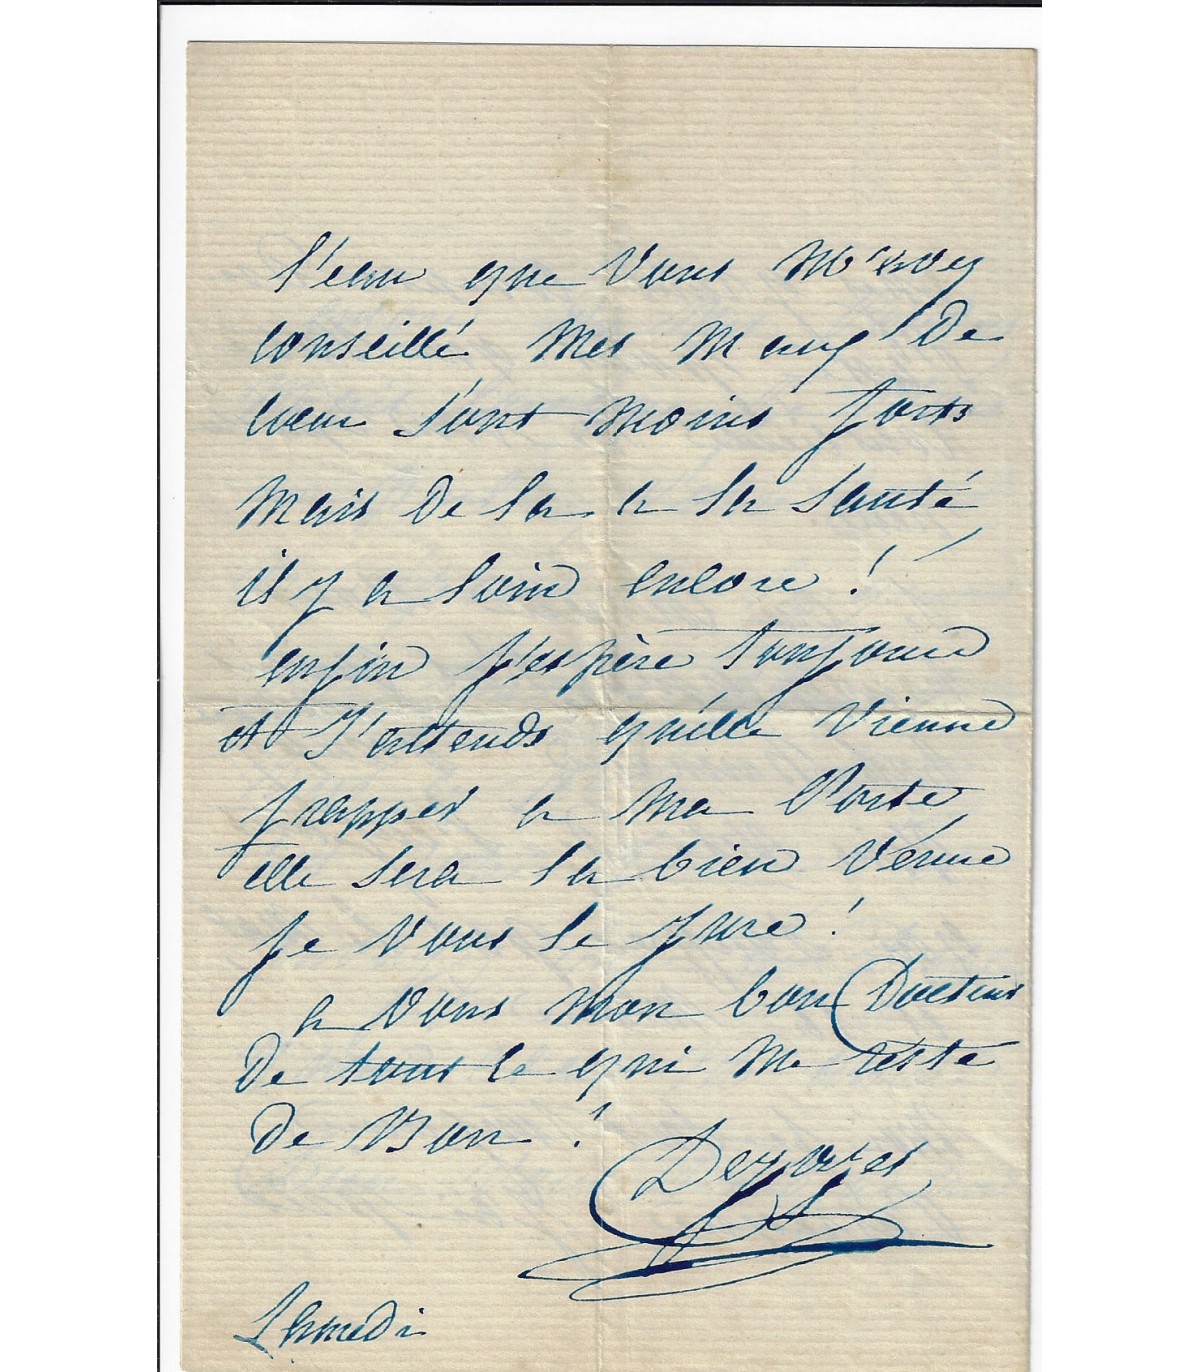 l'eau que vous m'avez
conseillé mes maux de
cœur sont moins forts
mais de la a la santé
il y a loin encore !
enfin j'espère toujours
et J'attends qu'elle vienne
frapper a ma Porte
elle sera la bien venue
je vous le jure !
a vous mon bon Docteur
De tout ce qui me reste
De Bon !
Samedi